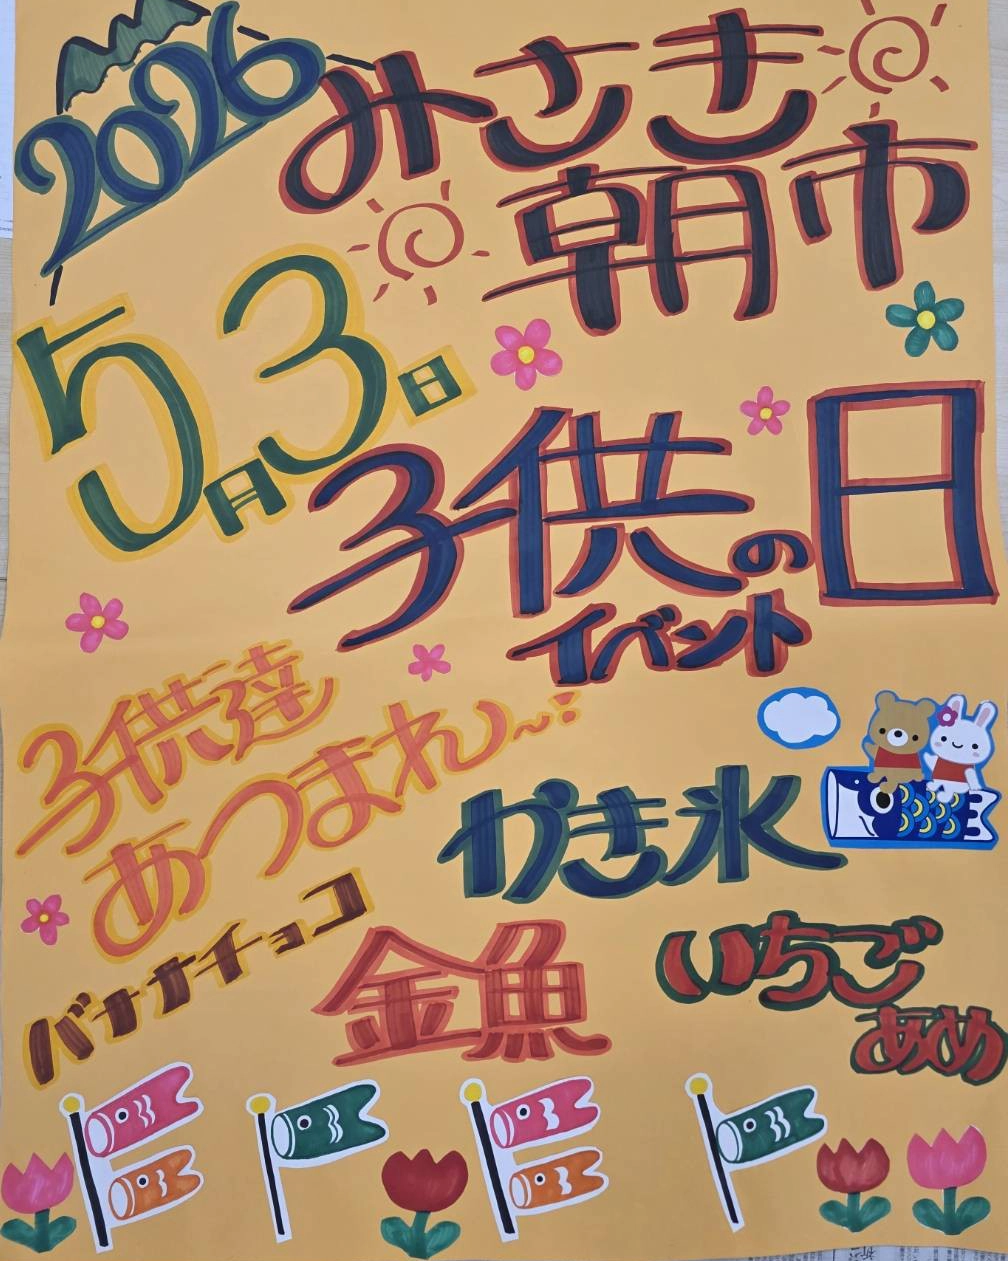 2026
みさき
朝市
5月3日
子供の日
イベント
子供達
あつまれ〜!!
かき氷
バナナチョコ
金魚
いちご
あめ